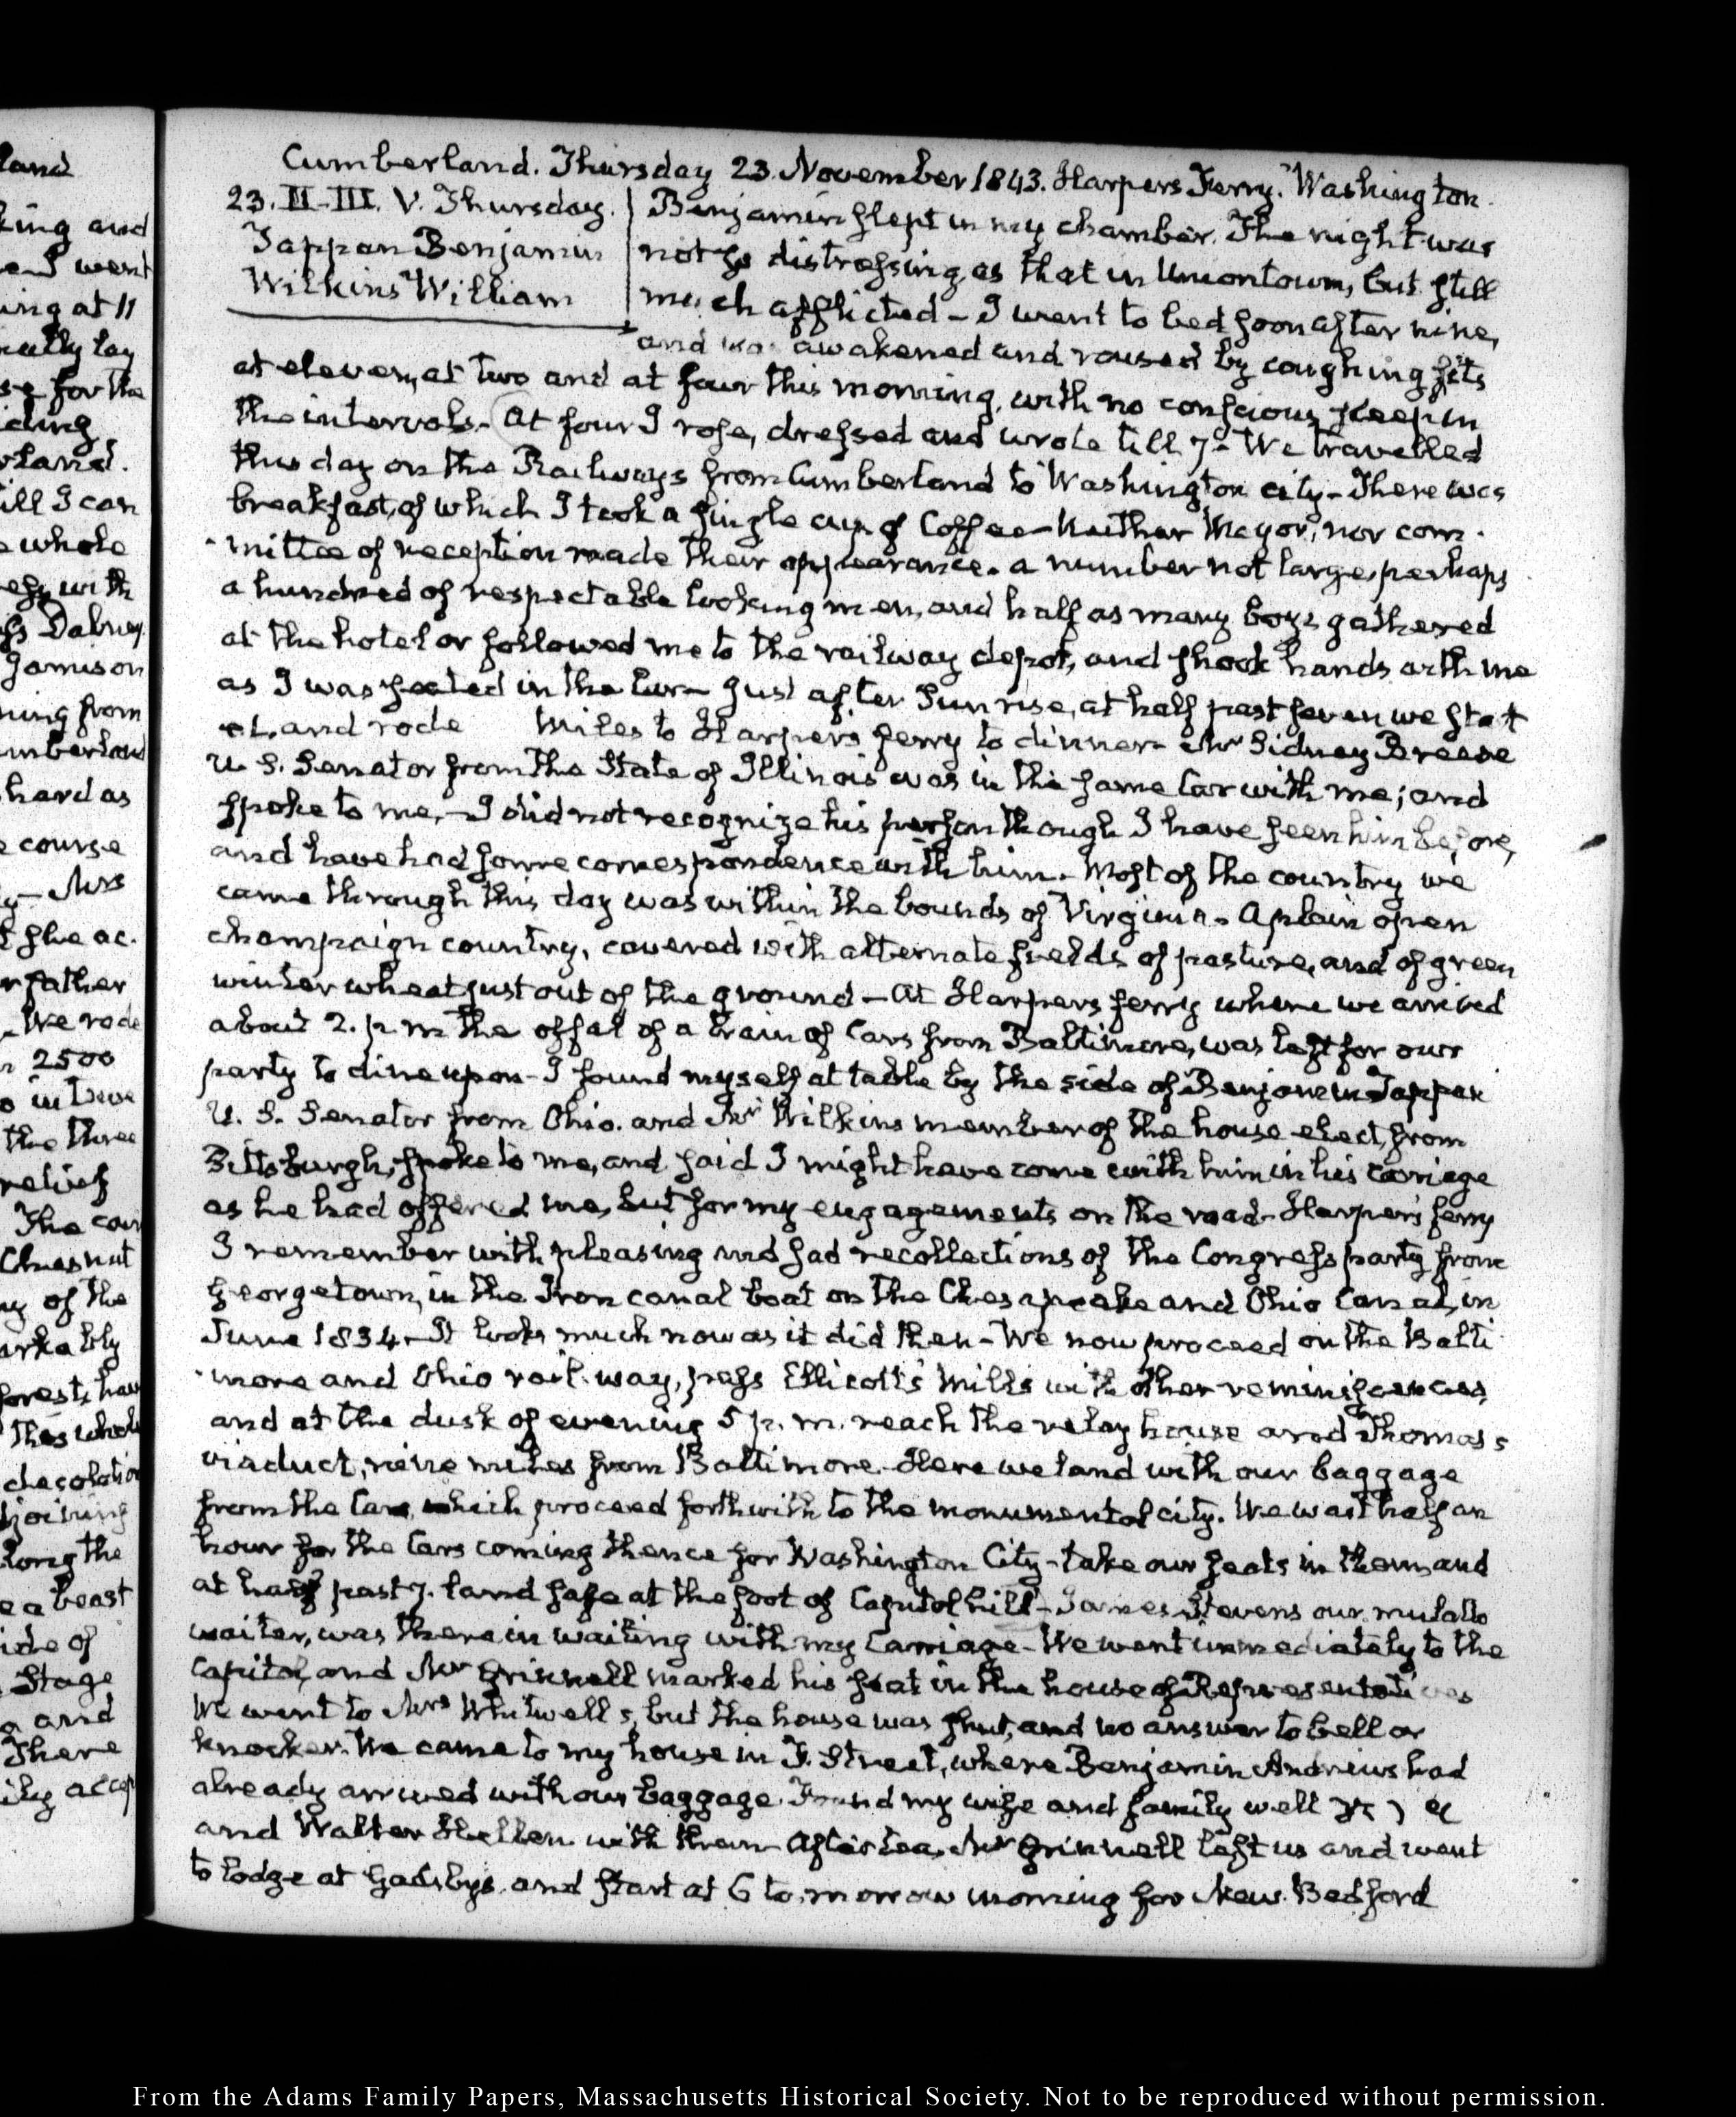 land
king and
I went
ing at 11
cally lay
se for the
iding
rland.
ill I can
whole
with
Dabney
Jamison
ning from
umberland
hard as
e course
Mrs
she ac.
r father
We rode
2500
in twe
the three
relief
The cou
Chesnut
ny of the
arkably
forest, hav
This whol
desolation
joining
long the
e a beast
ide of
Stage
and
There
ily accep
Cumberland. Thursday 23. November 1843. Harpers Ferry. Washington.
23. II–III. V. Thursday.
Tappan Benjamin
Wilkins William
Benjamin slept in my chamber. The night was
not so distressing as that in Uniontown, but still
much afflicted – I went to bed soon after nine,
and was awakened and roused by coughing fits
at eleven, at two and at four this morning, with no conscious sleep in
the intervals. – At four I rose, dressed and wrote till 7. – We travelled
this day on the Railways from Cumberland to Washington city – There was
breakfast, of which I took a single cup of Coffee – Neither Mayor, nor com-
-mittee of reception made their appearance. a number not large, perhaps
a hundred of respectable looking men, and half as many boys gathered
at the hotel or followed me to the railway depot, and shook hands with me
as I was seated in the Car – Just after Sunrise, at half past seven we start
et, and rode miles to Harper's ferry to dinner – Mr Sidney Breese
U. S. Senator from the State of Illinois was in the same Car with me; and
spoke to me, – I did not recognize his person though I have seen him before,
and have had some correspondence with him. – Most of the country we
came through this day was within the bounds of Virginia – A plain open
champaign country, covered with alternate fields of pasture, and of green
winter wheat just out of the ground – At Harpers ferry where we arrived
about 2. p. m the offal of a train of Cars from Baltimore, was left for our
party to dine upon – I found myself at table by the side of Benjamin Tappan
U. S. Senator from Ohio. and Mr Wilkins member of the house elect, from
Pittsburgh, spoke to me, and said I might have come with him in his carriage
as he had offered me, but for my engagements on the road – Harper's ferry
I remember with pleasing and sad recollections of the Congress party from
Georgetown, in the Iron canal boat on the Chesapeake and Ohio Canal, in
June 1834 – It looks much now as it did then – We now proceed on the Balti
-more and Ohio rail-way, pass Ellicott's Mills with other reminiscences,
and at the dusk of evening 5 p. m. reach the relay house and Thomas's
viaduct, nine miles from Baltimore. Here we land with our baggage
from the Cars, which proceed forthwith to the monumental city. We wait half an
hour for the Cars coming thence for Washington City – take our seats in them and
at half past 7. land safe at the foot of Capitol hill – James Stevens our mulatto
waiter, was there in waiting with my Carriage – We went immediately to the
Capitol, and Mr Grinnell marked his seat in the house of Representatives
We went to Mrs Whitwell's, but the house was shut, and no answer to bell or
knocker. We came to my house in F. Street, where Benjamin Andrews had
already arrived with our baggage. Found my wife and family well
and Walter Hellen with them – After tea, Mr Grinnell left us and went
to lodge at Gadsby's. and start at 6 to-morrow morning for New-Bedford
From the Adams Family Papers, Massachusetts Historical Society. Not to be reproduced without permission.